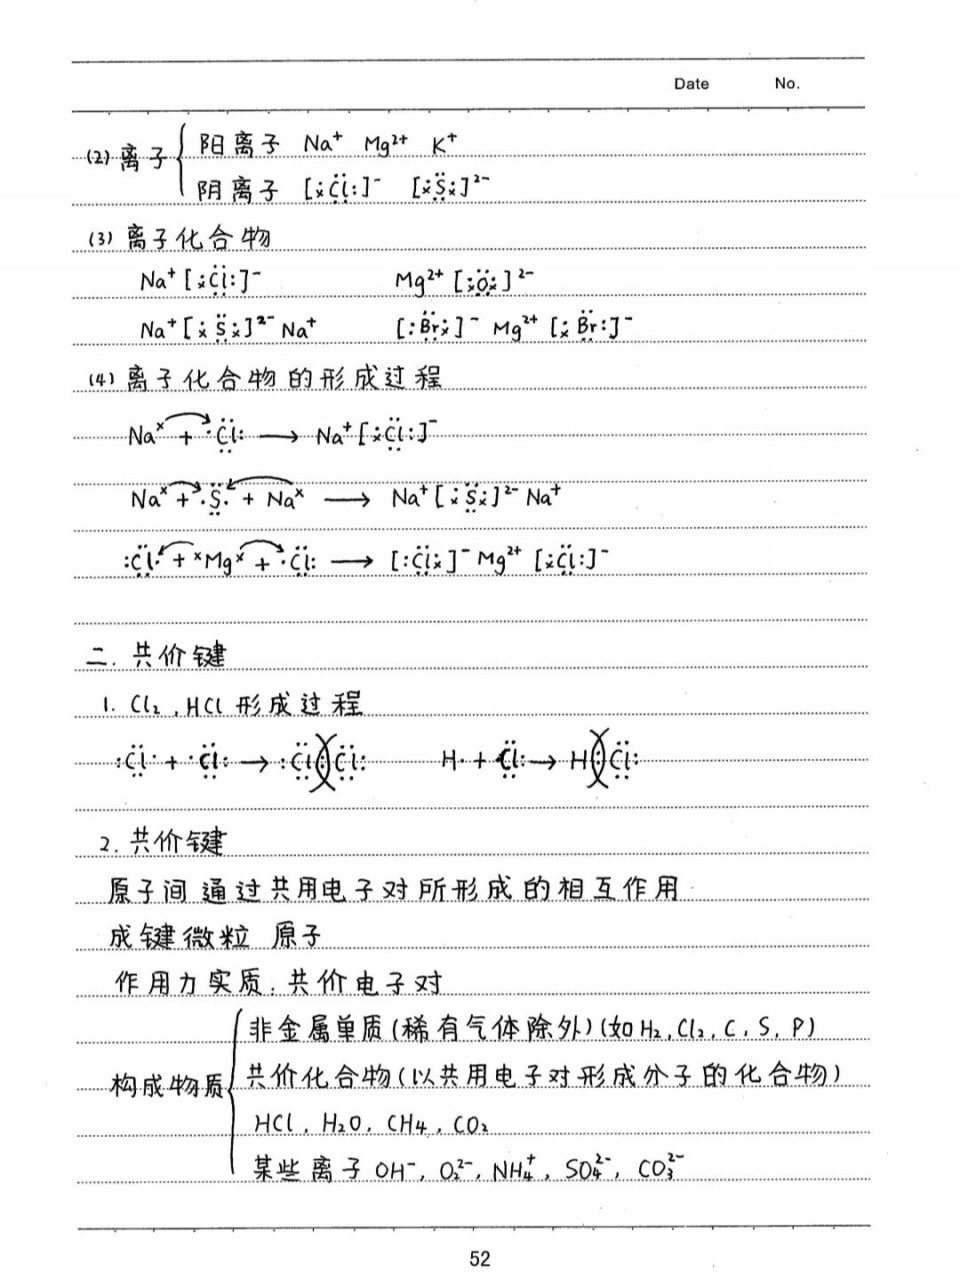 Date No.
(2) 离子 { 阳离子 Na⁺ Mg²⁺ K⁺
阴离子 [:Cl:]⁻ [:S:]²⁻
(3) 离子化合物
Na⁺[:Cl:]⁻ Mg²⁺[:O:]²⁻
Na⁺[:S:]²⁻Na⁺ [:Br:]⁻Mg²⁺[:Br:]⁻
(4) 离子化合物的形成过程
Naˣ + ·Cl: → Na⁺[:Cl:]⁻
Naˣ + ·S· + Naˣ → Na⁺[:S:]²⁻Na⁺
:Cl· + ˣMgˣ + ·Cl: → [:Cl:]⁻Mg²⁺[:Cl:]⁻
二. 共价键
1. Cl₂, HCl 形成过程
:Cl· + ·Cl: → :Cl:Cl: H· + ·Cl: → H:Cl:
2. 共价键
原子间通过共用电子对所形成的相互作用
成键微粒 原子
作用力实质: 共价电子对
构成物质 { 非金属单质(稀有气体除外)(如H₂, Cl₂, C, S, P)
共价化合物(以共用电子对形成分子的化合物)
HCl, H₂O, CH₄, CO₂
某些离子 OH⁻, O₂²⁻, NH₄⁺, SO₄²⁻, CO₃²⁻
52